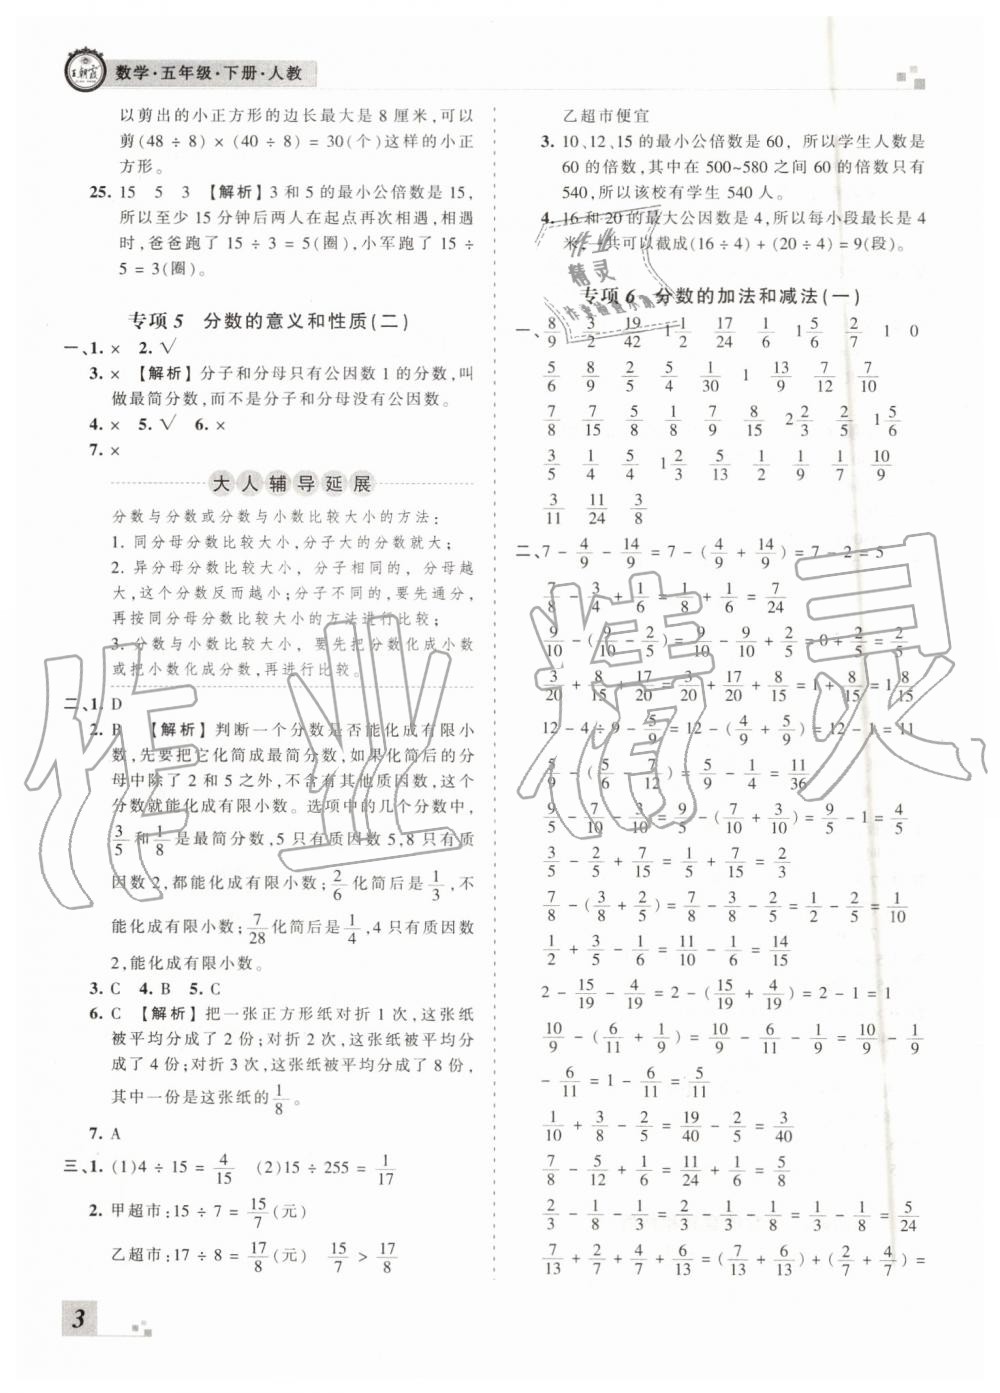 王朝霞
数学·五年级·下册·人教
以剪出的小正方形的边长最大是 8 厘米,可以
剪(48 ÷ 8) × (40 ÷ 8) = 30(个)这样的小正
方形。
25. 15 5 3 【解析】3 和 5 的最小公倍数是 15,
所以至少 15 分钟后两人在起点再次相遇,相遇
时,爸爸跑了 15 ÷ 3 = 5(圈),小军跑了 15 ÷
5 = 3(圈)。
专项 5 分数的意义和性质(二)
一、1. × 2. √
3. × 【解析】分子和分母只有公因数 1 的分数,叫
做最简分数,而不是分子和分母没有公因数。
4. × 5. √ 6. ×
7. ×
大人辅导延展
分数与分数或分数与小数比较大小的方法:
1. 同分母分数比较大小,分子大的分数就大;
2. 异分母分数比较大小,分子相同的,分母越
大,这个分数反而越小;分子不同的,要先通分,
再按同分母分数比较大小的方法进行比较;
3. 分数与小数比较大小,要先把分数化成小数
或把小数化成分数,再进行比较。
二、1. D
2. B 【解析】判断一个分数是否能化成有限小
数,先要把它化简成最简分数,如果化简后的分
母中除了 2 和 5 之外,不含有其他质因数,这个
分数就能化成有限小数。选项中的几个分数中,
3/5 和 1/8 是最简分数,5 只有质因数 5,8 只有质
因数 2,都能化成有限小数;2/6 化简后是 1/3,不
能化成有限小数;7/28 化简后是 1/4,4 只有质因数
2,能化成有限小数。
3. C 4. B 5. C
6. C 【解析】把一张正方形纸对折 1 次,这张纸
被平均分成了 2 份;对折 2 次,这张纸被平均分
成了 4 份;对折 3 次,这张纸被平均分成了 8 份,
其中一份是这张纸的 1/8。
7. A
三、1. (1)4 ÷ 15 = 4/15 (2)15 ÷ 255 = 1/17
2. 甲超市:15 ÷ 7 = 15/7(元)
乙超市:17 ÷ 8 = 17/8(元) 15/7 > 17/8
乙超市便宜
3. 10、12、15 的最小公倍数是 60, 所以学生人数是
60 的倍数,其中在 500~580 之间 60 的倍数只有
540,所以该校有学生 540 人。
4. 16 和 20 的最大公因数是 4,所以每小段最长是 4
米,一共可以截成(16 ÷ 4) + (20 ÷ 4) = 9(段)。
专项 6 分数的加法和减法(一)
一、8/9 3/2 19/42 1 1/2 17/24 1/6 1 5/6 2/7 1 0
5/6 8/9 2/5 5/4 1/30 1 13/9 7/12 7/10
7/8 7/15 5/8 1/8 7/9 8/15 2 2/3 2/5 1 5/6
3/5 1/4 4/5 1 2/3 5/13 1/2 1/9 1/1 10/9
3/11 11/24 3/8
二、7 - 4/9 - 14/9 = 7 - (4/9 + 14/9) = 7 - 2 = 5
7/8 - 3/4 + 1/6 = 1/8 + 1/6 = 7/24
9/10 - (9/10 - 2/5) = 9/10 - 9/10 + 2/5 = 0 + 2/5 = 2/5
3/20 + 8/15 + 17/20 = 3/20 + 17/20 + 8/15 = 1 + 8/15 = 1 8/15
12 - 4 ÷ 9 - 5/9 = 12 - (4/9 + 5/9) = 12 - 1 = 11
5/9 - (5/6 - 7/12) = 5/9 - 1/4 = 11/36
9/5 - 7/10 - 3/10 = 9/5 - (7/10 + 3/10) = 9/5 - 1 = 4/5
3/5 - 2/5 + 7/15 = 1/5 + 7/15 = 2/3
7/8 - (3/8 + 2/5) = 7/8 - 3/8 - 2/5 = 1/2 - 2/5 = 1/10
1/2 + 3/5 - 1/6 = 11/10 - 1/6 = 14/15
2 - 15/19 - 4/19 = 2 - (15/19 + 4/19) = 2 - 1 = 1
10/9 - (6/11 + 1/9) = 10/9 - 6/11 - 1/9 = 10/9 - 1/9
- 6/11 = 1 - 6/11 = 5/11
1/10 + 3/8 - 2/5 = 19/40 - 2/5 = 3/40
7/8 - 5/12 + 1/6 = 11/24 + 1/6 = 5/8
2/3 - 1/8 - 1/3 = 2/3 - 1/3 - 1/8 = 1/3 - 1/8 = 5/24
7/13 + 2/7 + 6/13 + 4/7 = (7/13 + 6/13) + (2/7 + 4/7) =
作业精灵
作业精灵
3